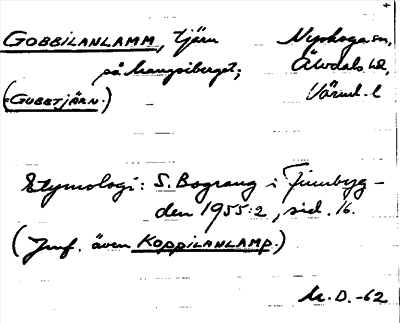 GOBBILANLAMM, tjärn Nyskoga sn,
på Mangsiberget; Älvdals hd,
(=GUBBTJÄRN.) Värml. l
Etymologi: S. Bograng i Finnbyg-
den 1955:2, sid. 16.
(Jmf. även KOPPILANLAMP.)
M. D. -62